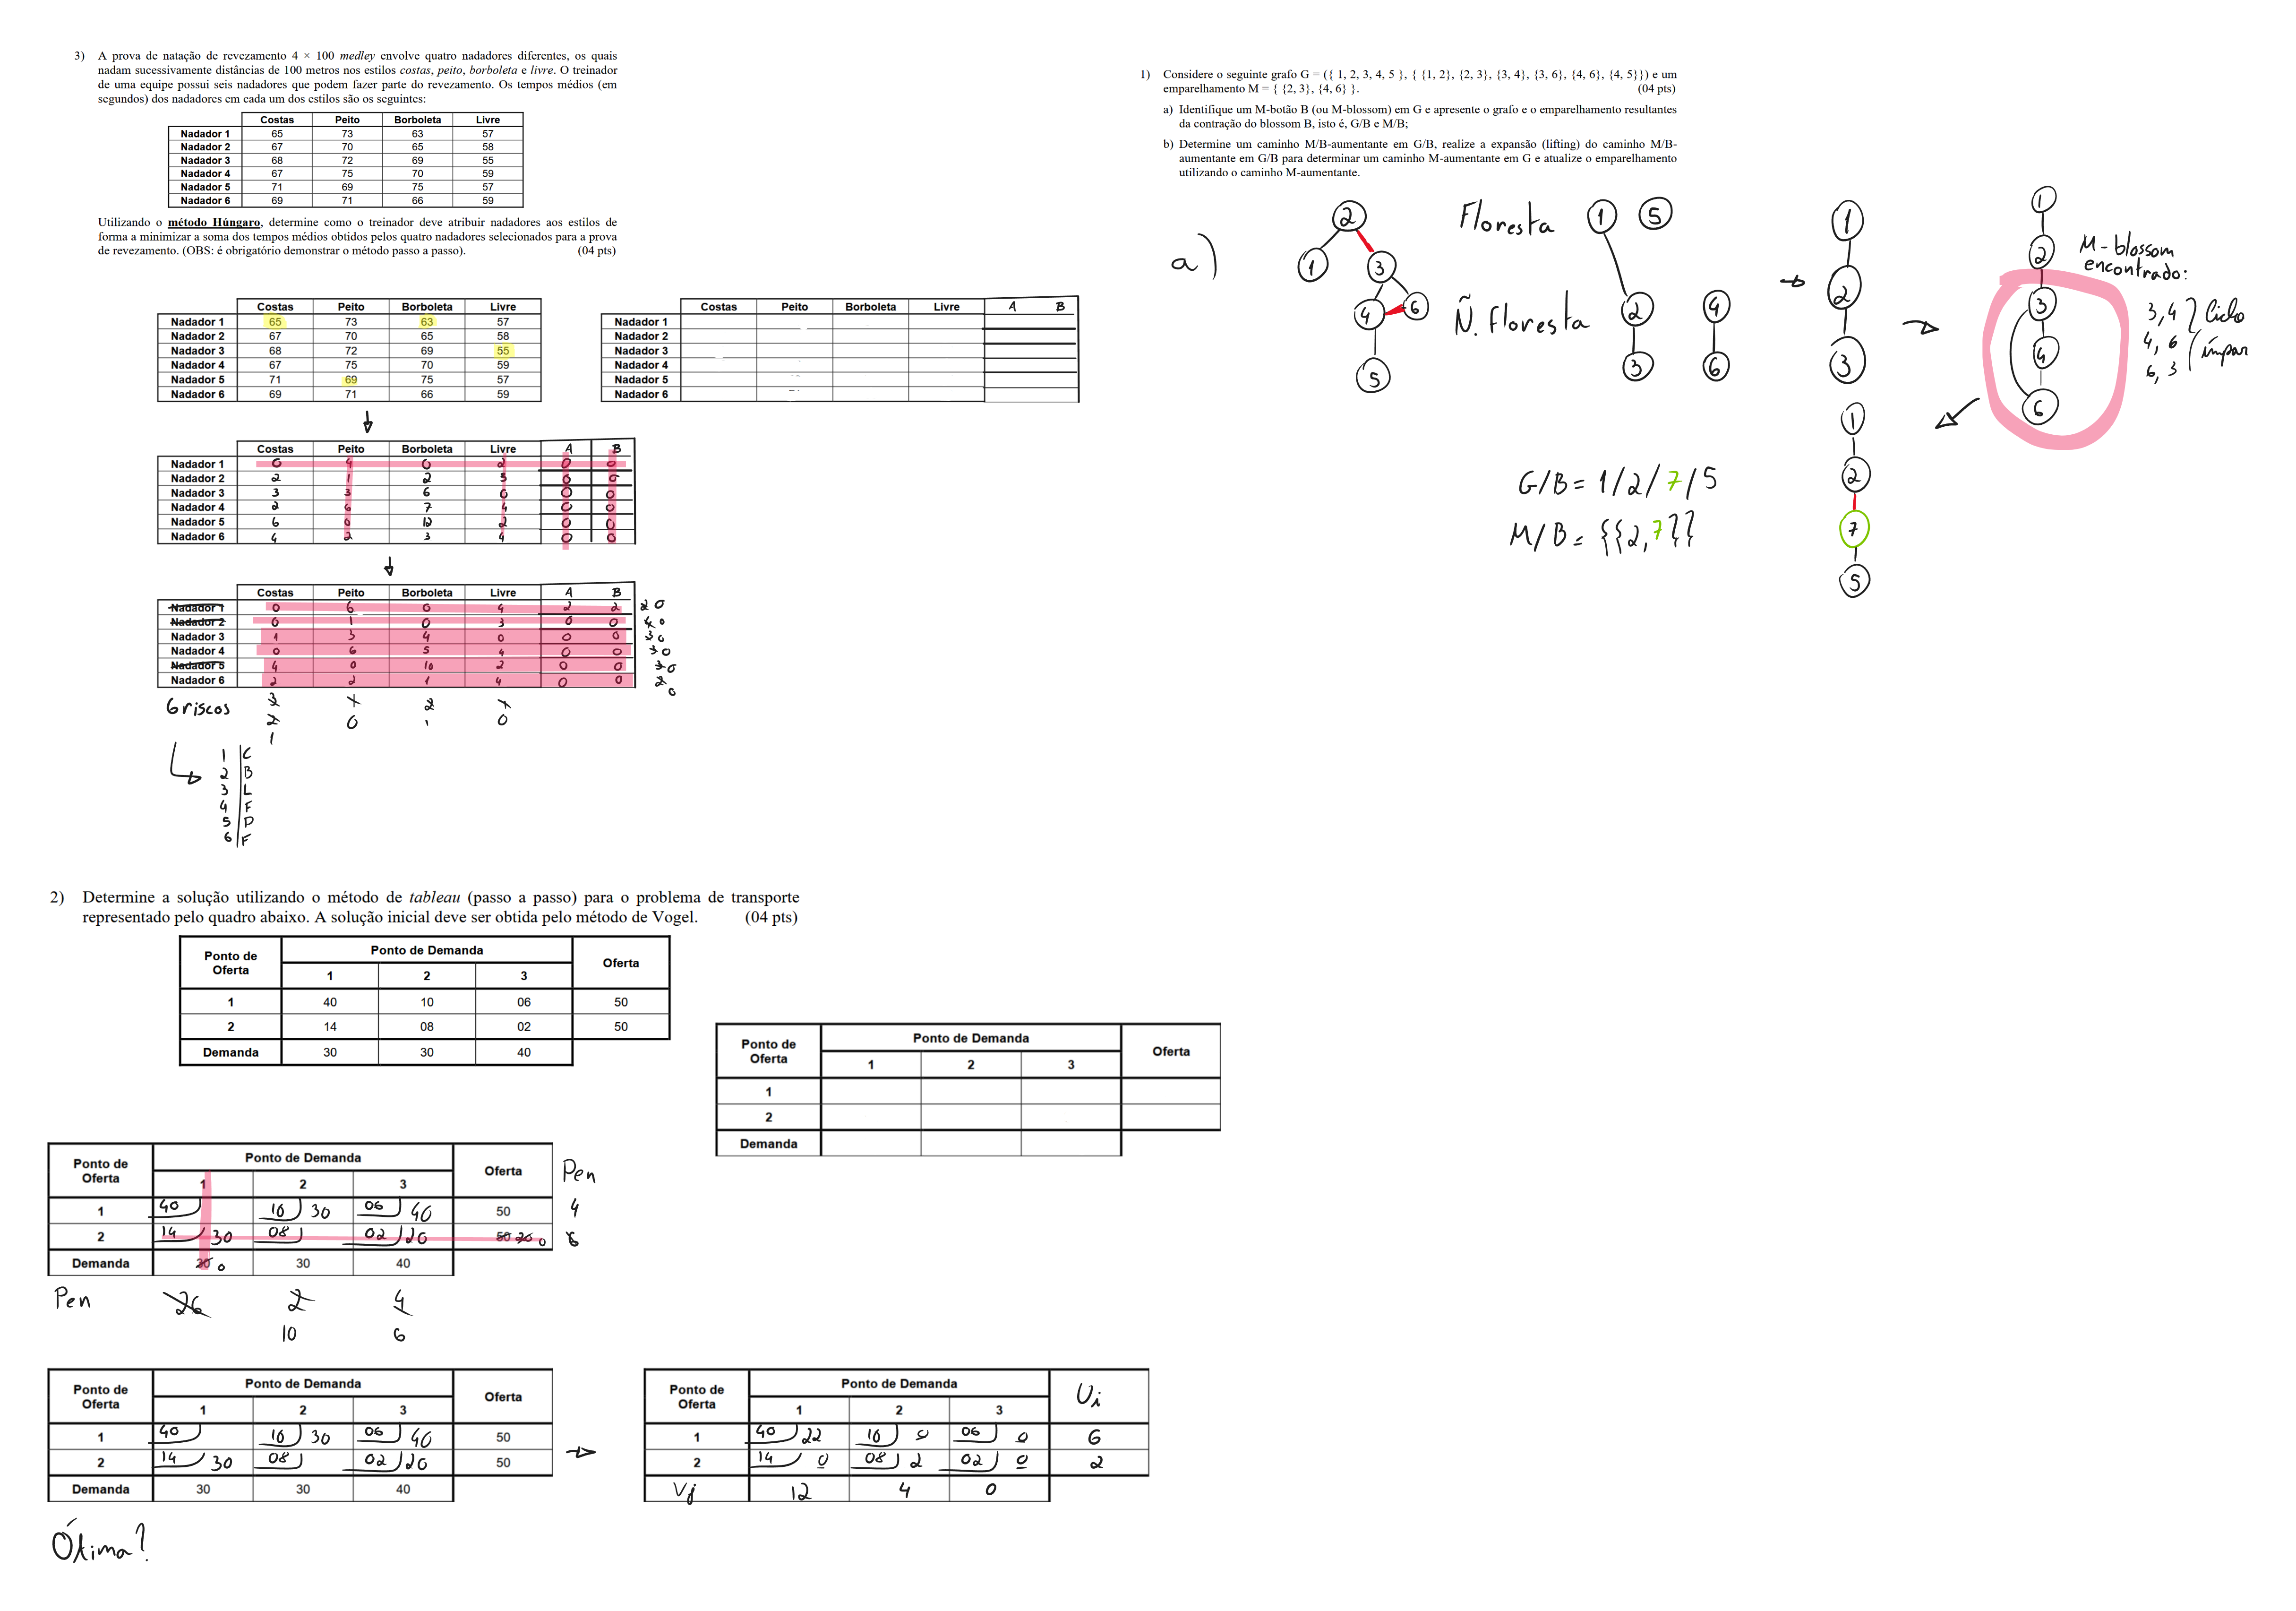 3) A prova de natação de revezamento 4 × 100 medley envolve quatro nadadores diferentes, os quais
nadam sucessivamente distâncias de 100 metros nos estilos costas, peito, borboleta e livre. O treinador
de uma equipe possui seis nadadores que podem fazer parte do revezamento. Os tempos médios (em
segundos) dos nadadores em cada um dos estilos são os seguintes:
Costas Peito Borboleta Livre
Nadador 1 65 73 63 57
Nadador 2 67 70 65 58
Nadador 3 68 72 69 55
Nadador 4 67 75 70 59
Nadador 5 71 69 75 57
Nadador 6 69 71 66 59
Utilizando o método Húngaro, determine como o treinador deve atribuir nadadores aos estilos de
forma a minimizar a soma dos tempos médios obtidos pelos quatro nadadores selecionados para a prova
de revezamento. (OBS: é obrigatório demonstrar o método passo a passo). (04 pts)
Costas Peito Borboleta Livre
Nadador 1 65 73 63 57
Nadador 2 67 70 65 58
Nadador 3 68 72 69 55
Nadador 4 67 75 70 59
Nadador 5 71 69 75 57
Nadador 6 69 71 66 59
Costas Peito Borboleta Livre A B
Nadador 1
Nadador 2
Nadador 3
Nadador 4
Nadador 5
Nadador 6
Costas Peito Borboleta Livre A B
Nadador 1 0 4 0 2 0 0
Nadador 2 2 1 2 3 0 0
Nadador 3 3 3 6 0 0 0
Nadador 4 2 6 7 4 0 0
Nadador 5 6 0 12 2 0 0
Nadador 6 4 2 3 4 0 0
Costas Peito Borboleta Livre A B
Nadador 1 0 6 0 4 2 2 2 0
Nadador 2 0 1 0 3 0 0 4 0
Nadador 3 1 3 4 0 0 0 3 0
Nadador 4 0 6 5 4 0 0 3 0
Nadador 5 4 0 10 2 0 0 3 0
Nadador 6 2 2 1 4 0 0 2 0
6 riscos
3 1 2 1
2 0 1 0
1
1 C
2 B
3 L
4 F
5 P
6 F
1) Considere o seguinte grafo G = ({ 1, 2, 3, 4, 5 }, { {1, 2}, {2, 3}, {3, 4}, {3, 6}, {4, 6}, {4, 5}}) e um
emparelhamento M = { {2, 3}, {4, 6} }. (04 pts)
a) Identifique um M-botão B (ou M-blossom) em G e apresente o grafo e o emparelhamento resultantes
da contração do blossom B, isto é, G/B e M/B;
b) Determine um caminho M/B-aumentante em G/B, realize a expansão (lifting) do caminho M/B-
aumentante em G/B para determinar um caminho M-aumentante em G e atualize o emparelhamento
utilizando o caminho M-aumentante.
a)
2
1 3
4 6
5
Floresta 1 5
Ñ. floresta 2 4
3 6
1
2
3
1
2
3
4
6
M-blossom
encontrado:
3,4 Ciclo
4,6 ímpar
6,3
1
2
7
5
G/B = 1/2/7/5
M/B = {{2,7}}
2) Determine a solução utilizando o método de tableau (passo a passo) para o problema de transporte
representado pelo quadro abaixo. A solução inicial deve ser obtida pelo método de Vogel. (04 pts)
Ponto de Oferta Ponto de Demanda Oferta
1 2 3
1 40 10 06 50
2 14 08 02 50
Demanda 30 30 40
Ponto de Oferta Ponto de Demanda Oferta
1 2 3
1
2
Demanda
Ponto de Oferta Ponto de Demanda Oferta Pen
1 2 3
1 40 10 30 06 40 50 4
2 14 30 08 02 20 50 20 0 6
Demanda 30 0 30 40
Pen 26 2 4
10 6
Ponto de Oferta Ponto de Demanda Oferta
1 2 3
1 40 10 30 06 40 50
2 14 30 08 02 20 50
Demanda 30 30 40
Ponto de Oferta Ponto de Demanda Ui
1 2 3
1 40 22 10 0 06 0 6
2 14 0 08 2 02 0 2
Vj 12 4 0
Ótima?